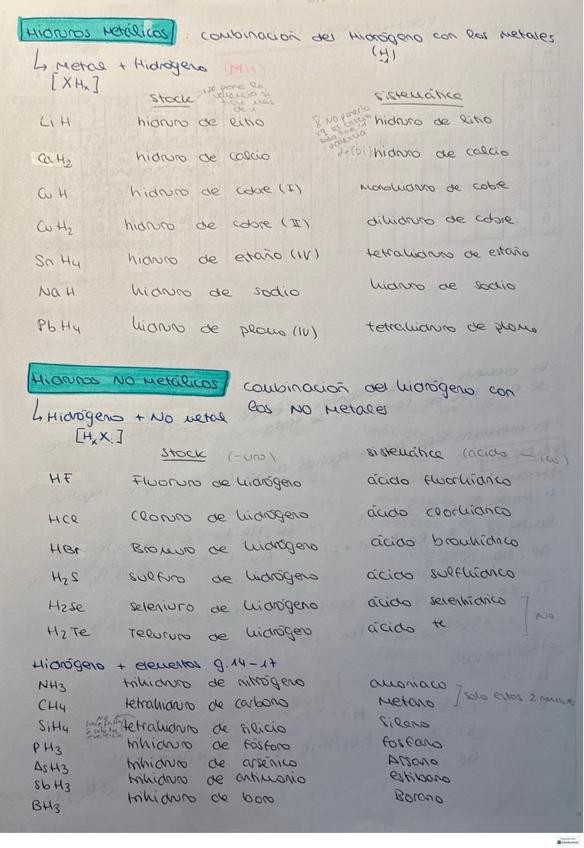 Hidruros Metálicos : combinación del Hidrógeno con los Metales
(H)
↳ Metal + Hidrógeno (MH)
[XHx]
Stock sistemática
no pone la valencia si hay más de 1
LiH hidruro de litio hidruro de litio
CaH2 hidruro de calcio (di)hidruro de calcio
CuH hidruro de cobre (I) monohidruro de cobre
CuH2 hidruro de cobre (II) dihidruro de cobre
SnH4 hidruro de estaño (IV) tetrahidruro de estaño
NaH hidruro de sodio hidruro de sodio
PbH4 hidruro de plomo (IV) tetrahidruro de plomo
Hidruros No Metálicos combinación del hidrógeno con
los NO Metales
↳ Hidrógeno + No metal
[HxX]
Stock (-uro) sistemática (ácido -ico)
HF Fluoruro de hidrógeno ácido fluorhídrico
HCl Cloruro de hidrógeno ácido clorhídrico
HBr Bromuro de hidrógeno ácido bromhídrico
H2S sulfuro de hidrógeno ácido sulfhídrico
H2Se seleniuro de hidrógeno ácido selenhídrico
H2Te Telururo de hidrógeno ácido te
NO
Hidrógeno + elementos g.14-17
NH3 trihidruro de nitrógeno amoniaco
CH4 tetrahidruro de carbono Metano
solo estos 2
SiH4 tetrahidruro de silicio Silano
PH3 trihidruro de fósforo fosfano
AsH3 trihidruro de arsénico Arsano
SbH3 trihidruro de antimonio estibano
BH3 trihidruro de boro Borano
CamScanner